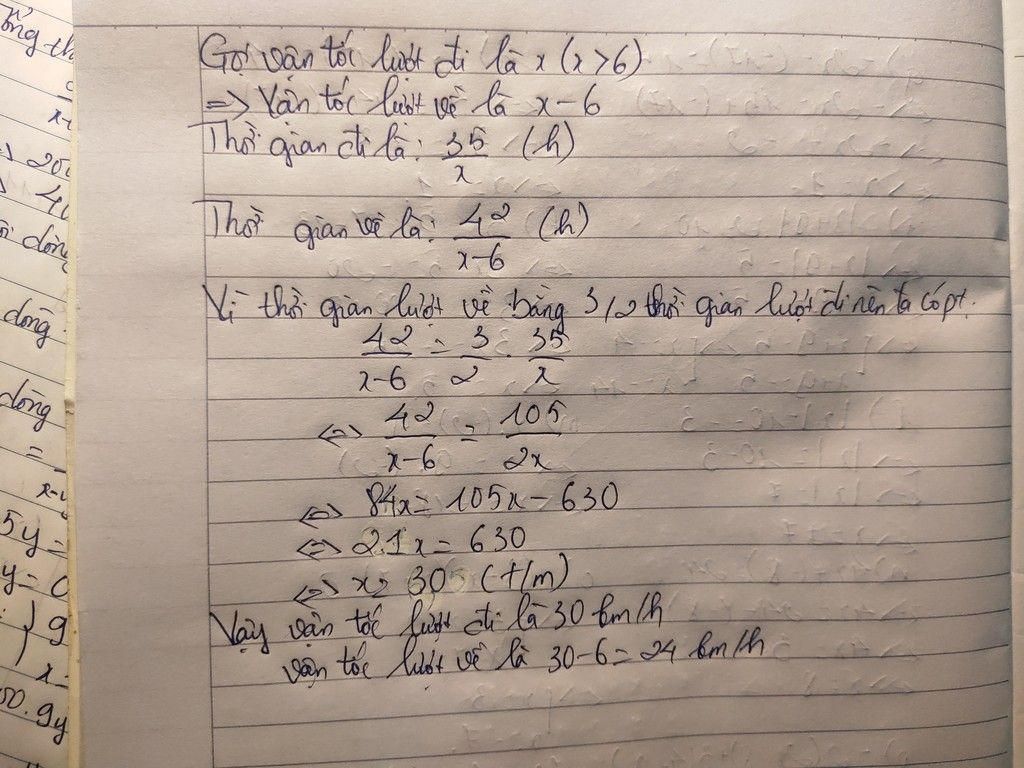 ống th
x-
=> 200
dòng
dòng
dòng
=
5y=
y= 0
x-
50.9y
Gọi vận tốc lượt đi là x (x>6)
=> Vận tốc lượt về là x-6
Thời gian đi là: 35/x (h)
Thời gian về là: 42/(x-6) (h)
Vì thời gian lượt về bằng 3/2 thời gian lượt đi nên ta có pt.
42/(x-6) = 3/2 . 35/x
<=> 42/(x-6) = 105/2x
<=> 84x = 105x - 630
<=> 21x = 630
<=> x = 30 (t/m)
Vậy vận tốc lượt đi là 30 km/h
vận tốc lượt về là 30-6 = 24 km/h